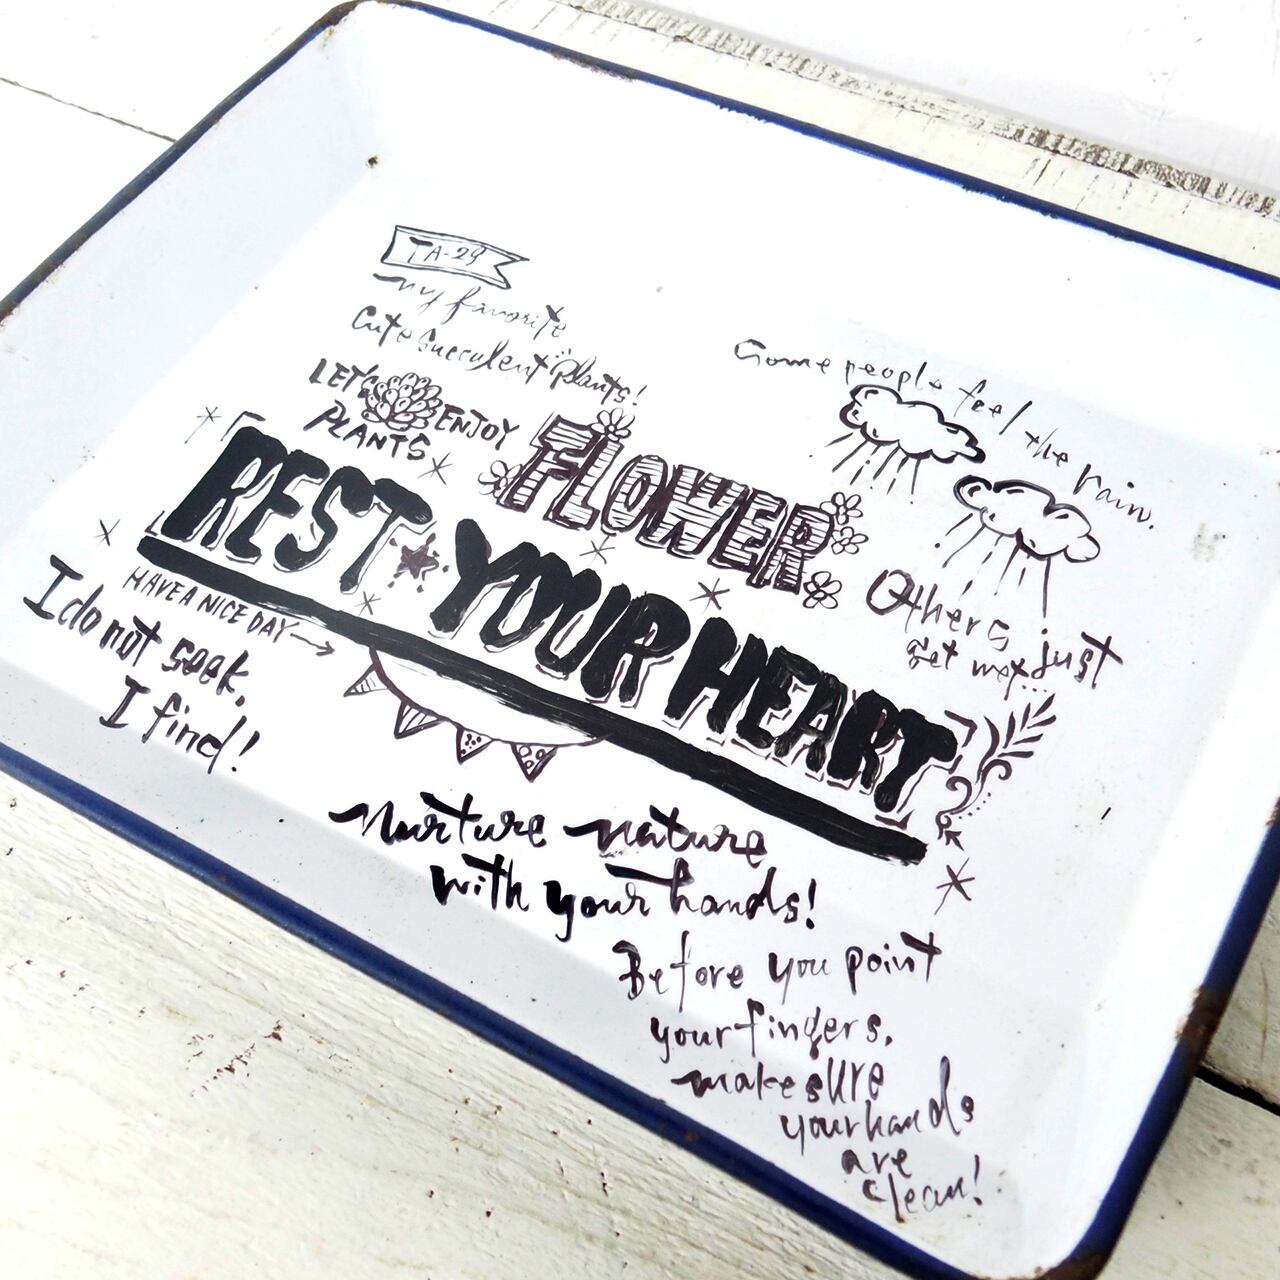 TA-29
my favorite
Cute succulent plants!
LET'S ENJOY
PLANTS
FLOWER
Some people feel the rain.
Others just
get wet...
REST YOUR HEART
HAVE A NICE DAY
I do not seek,
I find!
Nurture nature
with your hands!
Before you point
your fingers,
make sure
your hands
are
clean!